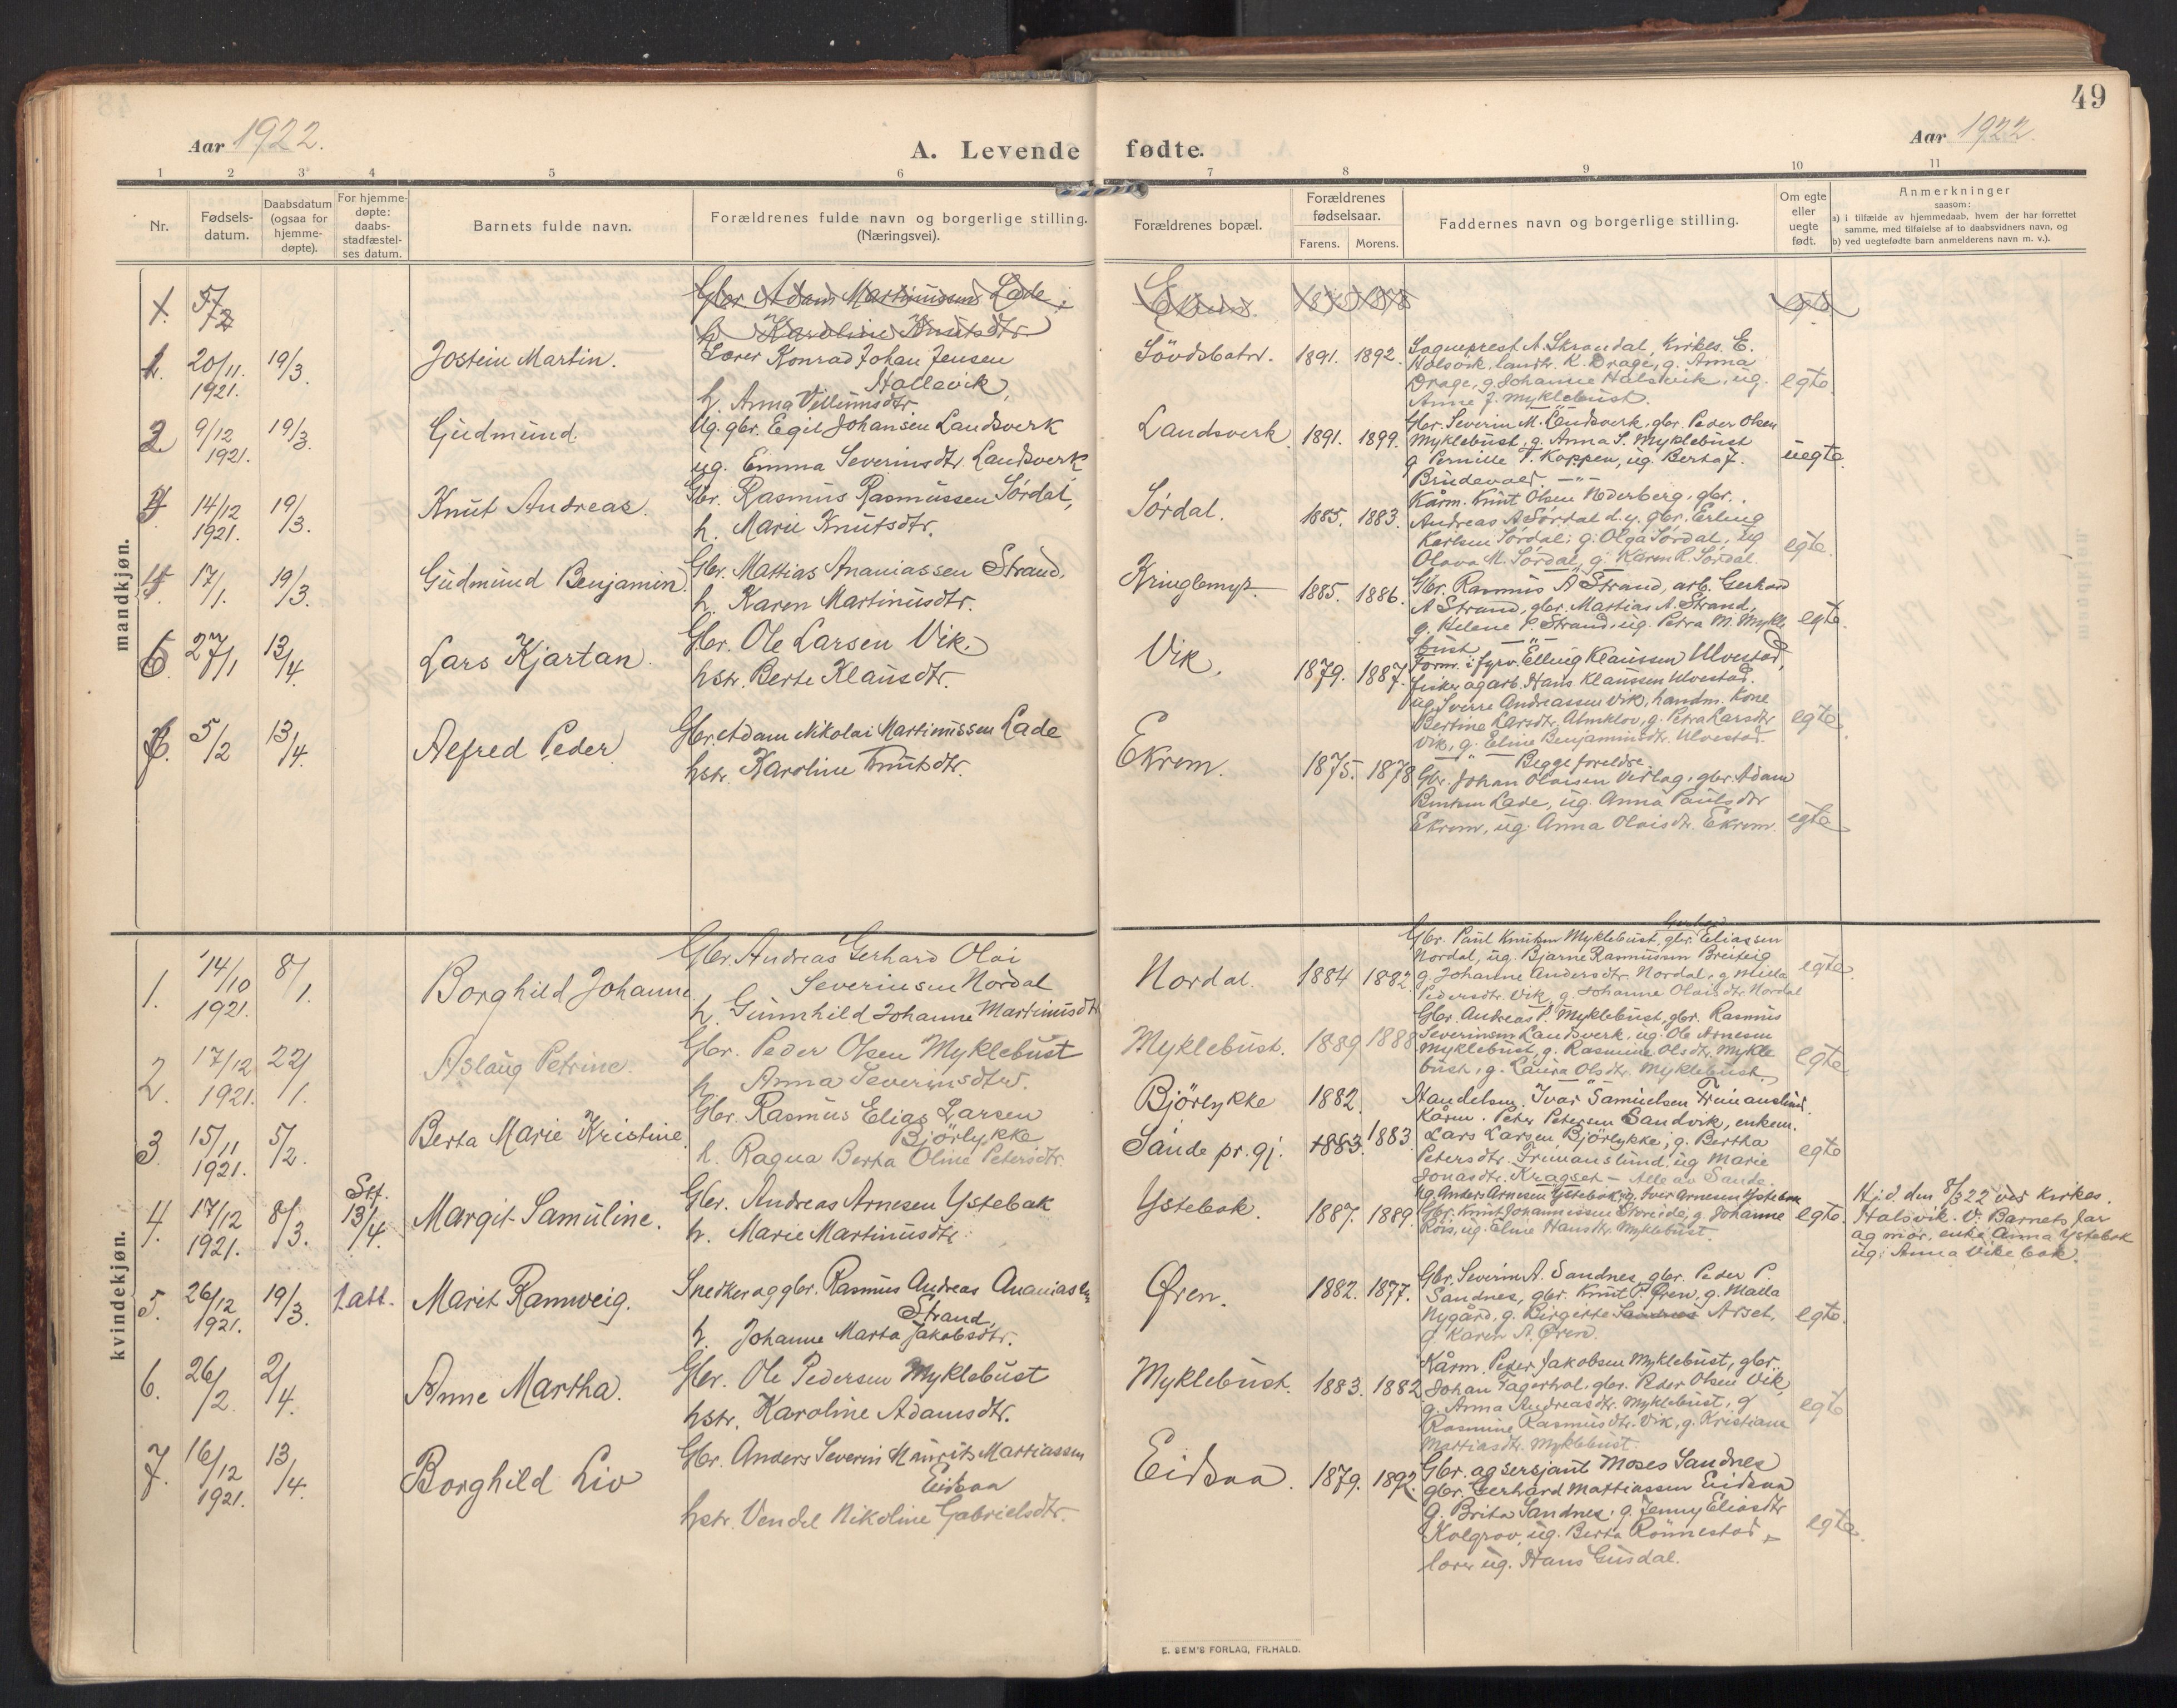 49
Aar 1922.
A. Levende fødte.
Aar 1922.
1 2 3 4 5 6 7 8 9 10 11
Nr.
Fødsels-
datum.
Daabsdatum
(ogsaa for
hjemme-
døpte).
For hjemme-
døpte:
daabs-
stadfæstel-
ses datum.
Barnets fulde navn.
Forældrenes fulde navn og borgerlige stilling.
(Næringsvei).
Forældrenes bopæl.
Forældrenes
fødselsaar.
Farens. Morens.
Faddernes navn og borgerlige stilling.
Om egte
eller
uegte
født.
Anmerkninger
saasom:
a) i tilfælde av hjemmedaab, hvem der har forrettet
samme, med tilføielse af to daabsvidners navn, og
b) ved uegtefødte barn anmelderens navn m. v.).
mandkjøn.
1. 5/2
Gbr Adam Martinussen Lade,
h Karoline Knutsdtr.
Ekrem. 1875 1878 egte
1. 20/11. 1921. 19/3. Jostein Martin.
Lærer Konrad Johan Jensen
Hallevik,
h. Anna Villumsdtr
1891. 1892.
Sogneprest A. Skrondal, Kirkes. E.
Halsvik, landh. K. Drage, g. Anna
Drage, g. Johanne Halsvik, ug.
Anne J. Myklebust.
egte.
2 9/12 1921. 19/3. Gudmund.
Ug. gbr. Egil Johansen Landsverk
ug. Emma Severinsdtr Landsverk
Landsverk. 1891. 1899.
Gbr. Severin M. Landsverk, gbr. Peder Olsen
Myklebust, g. Anna S. Myklebust
g Pernille T. Koppen, ug. Berta J.
Brudevold.
uegte.
14/12 1921. 19/3. Knut Andreas.
Gbr. Rasmus Rasmussen Sørdal,
h. Marie Knutsdtr.
Sørdal. 1885. 1883.
Kårm. Knut Olsen Nederberg, gbr.
Andreas A Sørdal d.y. gbr. Erling
Karlsen Sørdal; g. Olga Sørdal, ug
Olava M. Sørdal, g. Karen R. Sørdal.
egte.
4 17/1. 19/3. Gudmund Benjamin
Gbr. Mattias Ananiassen Strand.
h. Karen Martinusdtr.
Kringlemyr. 1885. 1886.
Gbr. Rasmus A Strand, arb. Gerhard
A Strand, gbr. Mattias A. Strand,
g. Helene P. Strand, ug. Petra M. Mykle
bust
egte.
27/1 13/4. Lars Kjartan.
Gbr. Ole Larsen Vik.
hstr. Berte Klausdtr.
Vik. 1879. 1887.
Form. i fyrv. Elling Klaussen Ulvestad,
fisker og arb. Hans Klaussen Ulvestad.
ug Sverre Andreassen Vik, handm. kone
Bertine Larsdtr. Almklov, g. Petra Larsdtr
Vik, g. Eline Benjaminsdtr. Ulvestad.
egte.
5/2 13/4. Alfred Peder.
Gbr. Adam Nikolai Martinussen Lade
hstr. Karoline Knutsdtr.
Ekrem. 1875. 1878
Begge foreldre.
Gbr. Johan Olaisen Verlag, gbr. Adam
Lade, ug. Anna Paulsdtr
Ekrem, ug. Anna Olaisdtr. Ekrem.
egte
kvindekjøn.
1. 14/10 1921. 8/1. Borghild Johanne
Gbr. Andreas Gerhard Olai
Severinsen Nordal
h. Gunnhild Johanne Martinusdtr
Nordal. 1884 1882.
Gerhard
Gbr. Paul Knutsen Myklebust, gbr. Eliassen
Nordal, ug. Bjarne Rasmussen Breiteig
g. Johanne Andersdtr. Nordal, g Milla
Pedersdtr. Vik, g. Johanne Olaisdtr. Nordal
egte.
2. 17/12 1921. 22/1. Aslaug Petrine.
Gbr. Peder Olsen Myklebust
h. Anna Severinsdtr.
Myklebust. 1889 1888
Gbr. Andreas P. Myklebust, gbr. Rasmus
Severinsen Landsverk, ug. Ole Arnesen
Myklebust, g. Rasmine Olsdtr. Mykle
bust, g. Laura Olsdtr. Myklebust.
egte.
3. 15/11 1921. 5/2. Berta Marie Kristine.
Gbr. Rasmus Elias Larsen
Bjørlykke
h. Ragna Berta Oline Petersdtr.
Bjørlykke 1882.
Sande pr. gj. 1883. 1883
Handelsm. Ivar Samuelsen Frimanslund.
Kårm. Peter Petersen Sandvik, enkem.
Lars Larsen Bjørlykke, g. Bertha
Petersdtr. Frimanslund, ug Marie
Jonasdtr. Kragset – Alle av Sande.
egte
4. 17/12 1921. 8/3. Stf. 13/4. Margit Samuline.
Gbr. Andreas Arnesen Ystebak
h. Marie Martinusdtr.
Ystebak. 1887. 1889.
Ug. Anders Arnesen Ystebak, g. Iver Arnesen Ystebak
Gbr. Knut Johannessen g Johanne
Røis, ug. Eline Hansdtr. Myklebust.
egte.
Hj.d. den 8/3 22 ved kirkes.
Halsvik. V. Barnets far
og mor, enke Anna Ystebak
ug. Anna Vikebak.
5. 26/12 1921. 19/3. 1 att. Marit Rannveig.
Snedker og gbr. Rasmus Andreas Ananiassen
Strand,
h. Johanne Marta Jakobsdtr.
Øren. 1882. 1877.
Gbr. Severin A. Sandnes, gbr. Peder P.
Sandnes, gbr. Knut P. Øren, g. Malla
Nygård, g. Birgitte Sandnes Årset,
g Karen A. Øren.
egte.
6. 26/2. 2/4. Anne Martha.
Gbr. Ole Pedersen Myklebust
hstr. Karoline Adamsdtr.
Myklebust. 1883. 1882
Kårm. Peder Jakobsen Myklebust, gbr.
Johan Fagerhol, gbr. Peder Olsen Vik,
g. Anna Andreasdtr. Myklebust, g
Rasmine Rasmusdtr. Vik, g. Kristiane
Mattiasdtr. Myklebust.
egte
7. 16/12 1921. 13/4. Borghild Liv
Gbr. Anders Severin Maurits Mattiassen
Eidsaa
hstr. Vendel Nikoline Gabrielsdtr.
Eidsaa. 1879. 1892.
Gbr. og sersjant Moses Sandnes
gbr. Gerhard Mattiassen Eidsaa
g. Brita Sandnes, g. Jenny Eliasdtr
Kolgrov, ug. Berta Rønnestad,
lærer ug. Hans Gusdal.
egte.
E. SEM'S FORLAG, FR.HALD.